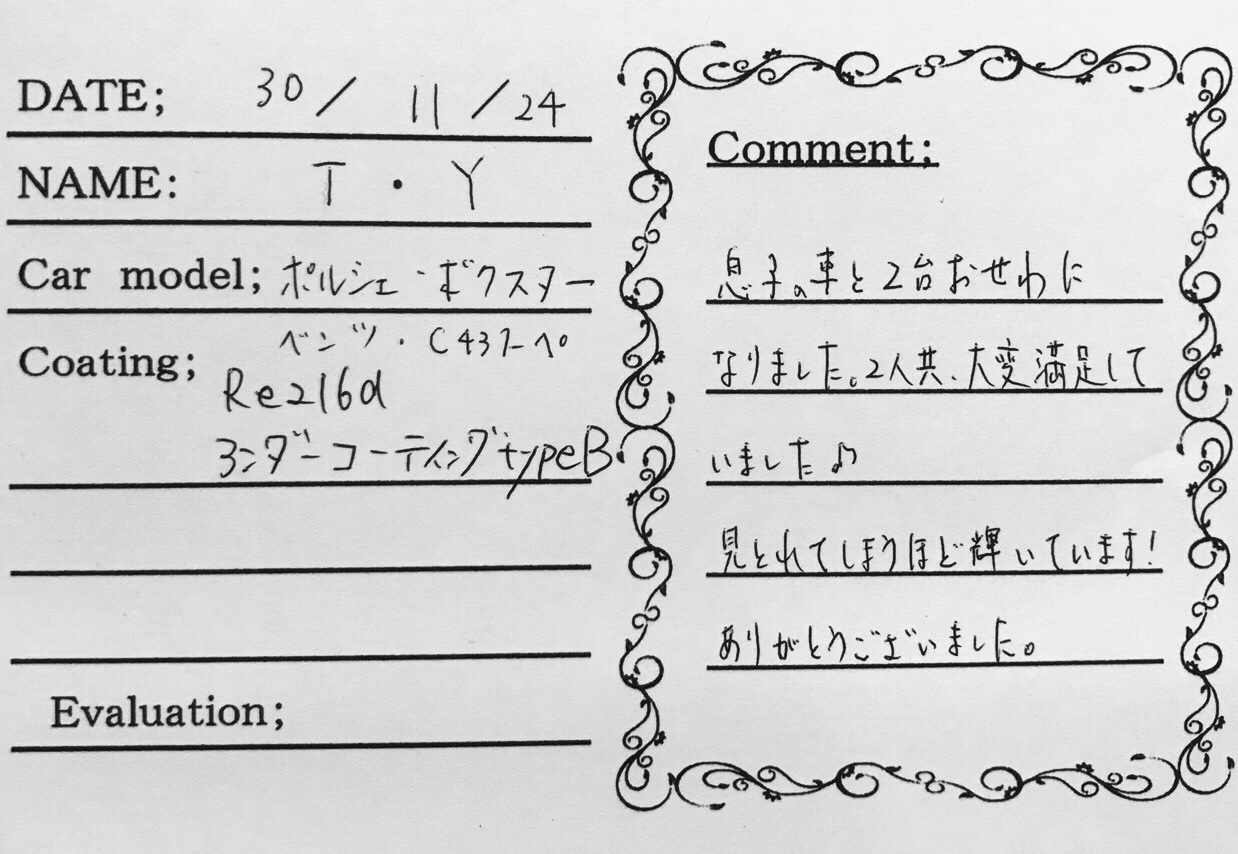 DATE; 30/11/24
NAME: T・Y
Car model; ポルシェ・ボクスター
ベンツ・C43クーペ
Coating;
Re216d
ヨンダーコーティングtypeB
Evaluation;
Comment;
息子の車と2台おせわに
なりました。2人共、大変満足して
いました♪
見とれてしまうほど輝いています!
ありがとうございました。